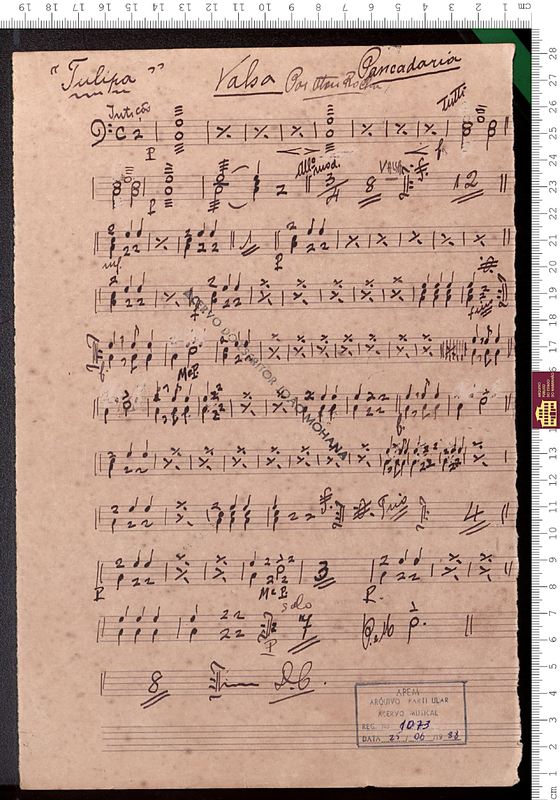 "Tulipa" Valsa Por Pancadaria
Tutti
2
P f
Allº mod. Valsa
P 2 3 4 8 12
mf. P
fim
f M e P
f
Trio 4
P M e P 3 P
solo
P 7 P. e M
8 D.C.
ACERVO DO ESCRITOR JOÃO MOHANA
APEM
ARQUIVO PARTI ULAR
ACERVO MUSICAL
REG. Nº 1073
DATA 23 / 06 /19 88
ARQUIVO PÚBLICO DO ESTADO DO MARANHÃO
cm 1 2 3 4 5 6 7 8 9 10 11 12 13 14 15 16 17 18 19
cm 1 2 3 4 5 6 7 8 9 10 11 12 13 14 15 16 17 18 19 20 21 22 23 24 25 26 27 28